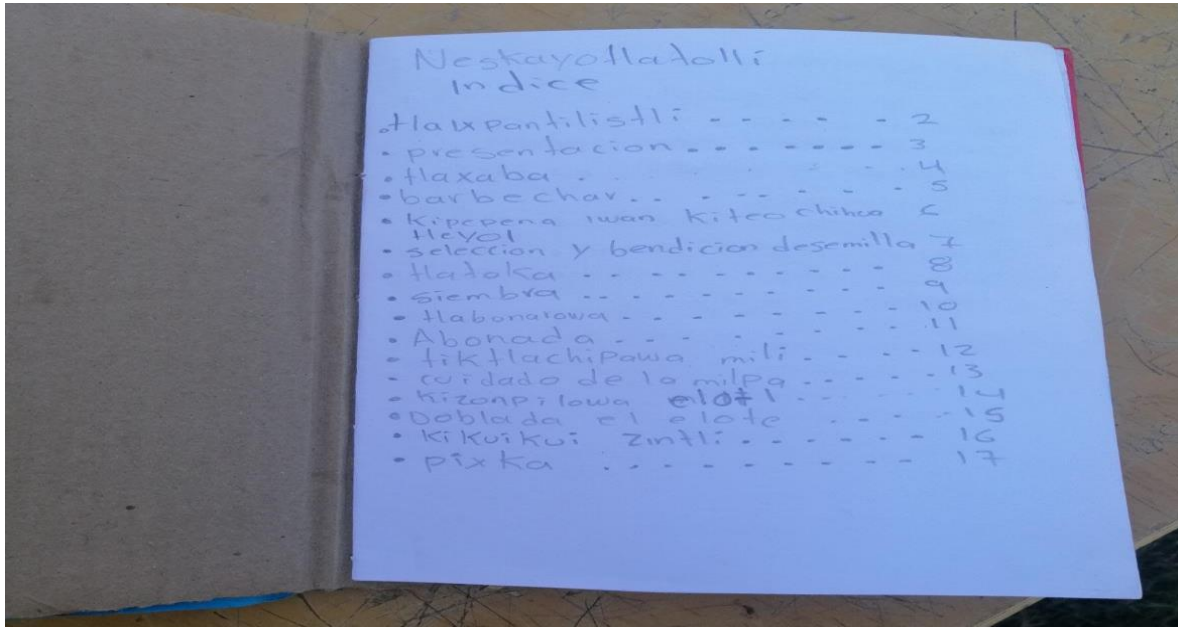 Neskayotlatolli
Indice
• tlaixpantilistli - - - - - 2
• presentacion - - - - - - - 3
• tlaxaba - - - - - - - 4
• barbechar - - - - - - - 5
• Kipepena iwan kiteochihua 6
tleyol
• seleccion y bendicion desemilla 7
• tlatoka - - - - - - - - - 8
• siembra - - - - - - - - - 9
• tlabonarowa - - - - - - - 10
• Abonada - - - - - - - 11
• tiktlachipawa mili - - - - 12
• cuidado de la milpa - - - - 13
• kizonpilowa elotl - - - - 14
• Doblada el elote - - - - 15
• Kikuikui zintli - - - - - - 16
• pixka - - - - - - - - - 17